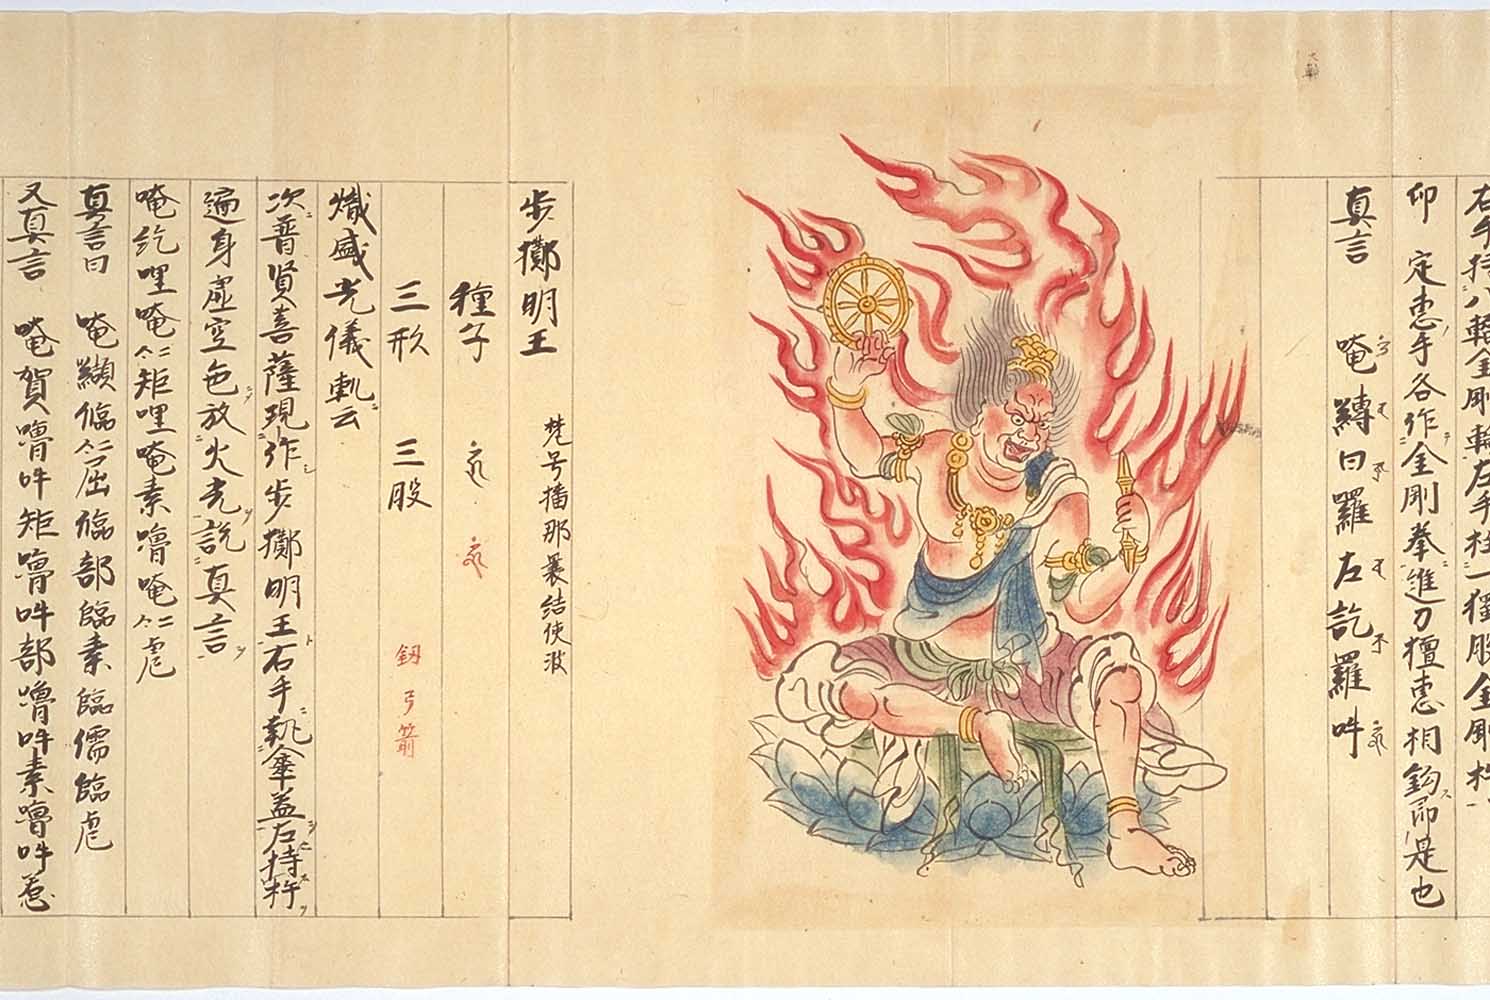 右手持八輻金剛輪左手柱一獨股金剛杵
仰 定惠手各作金剛拳進刀檀惠相鈎即是也
真言 唵縛日羅左訖羅吽
步擲明王 梵号播那曩結使波
種子
三形 三股 釼弓箭
熾盛光儀軌云
次普賢菩薩現作步擲明王右手執傘蓋左持杵
遍身虛空色放火光説真言
唵訖哩唵仁矩哩唵素嚕唵仁虎
真言曰 唵
又真言 唵賀嚕吽矩嚕吽部嚕吽素嚕吽惹